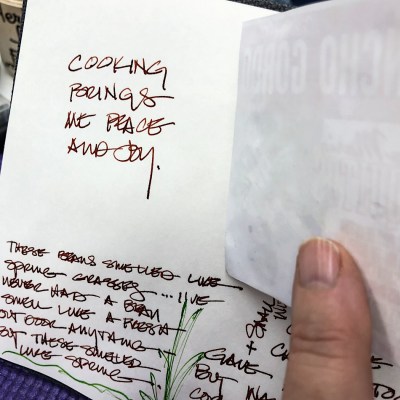 COOKING
BRINGS
ME PEACE
AND JOY.
THESE BEANS SMELLED LIKE
SPRING GRASSES ... I'VE
NEVER HAD A BEAN
SMELL LIKE A FRESH
OUTDOOR ANYTHING
BUT THESE SMELLED
LIKE SPRING
GAVE
BUT